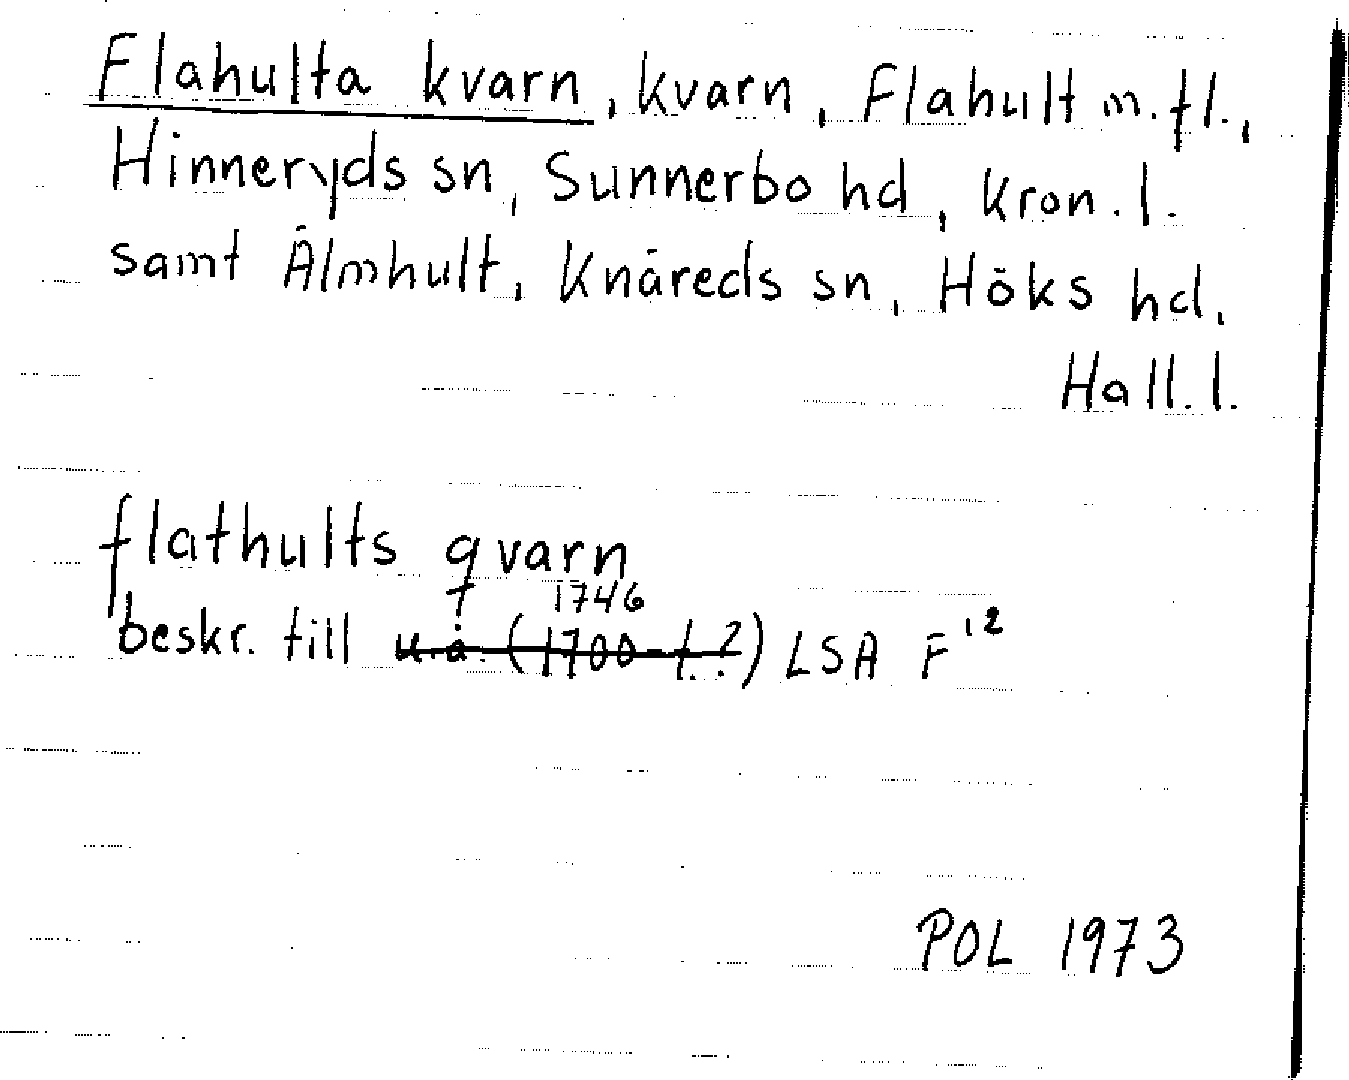 Flahulta kvarn, kvarn, Flahult m.fl.,
Hinneryds sn, Sunnerbo hd, Kron.l.
samt Älmhult, Knäreds sn, Höks hd,
Hall.l.
flathults qvarn
1746
beskr. till u.å. (1700-t.?) LSA F12
POL 1973